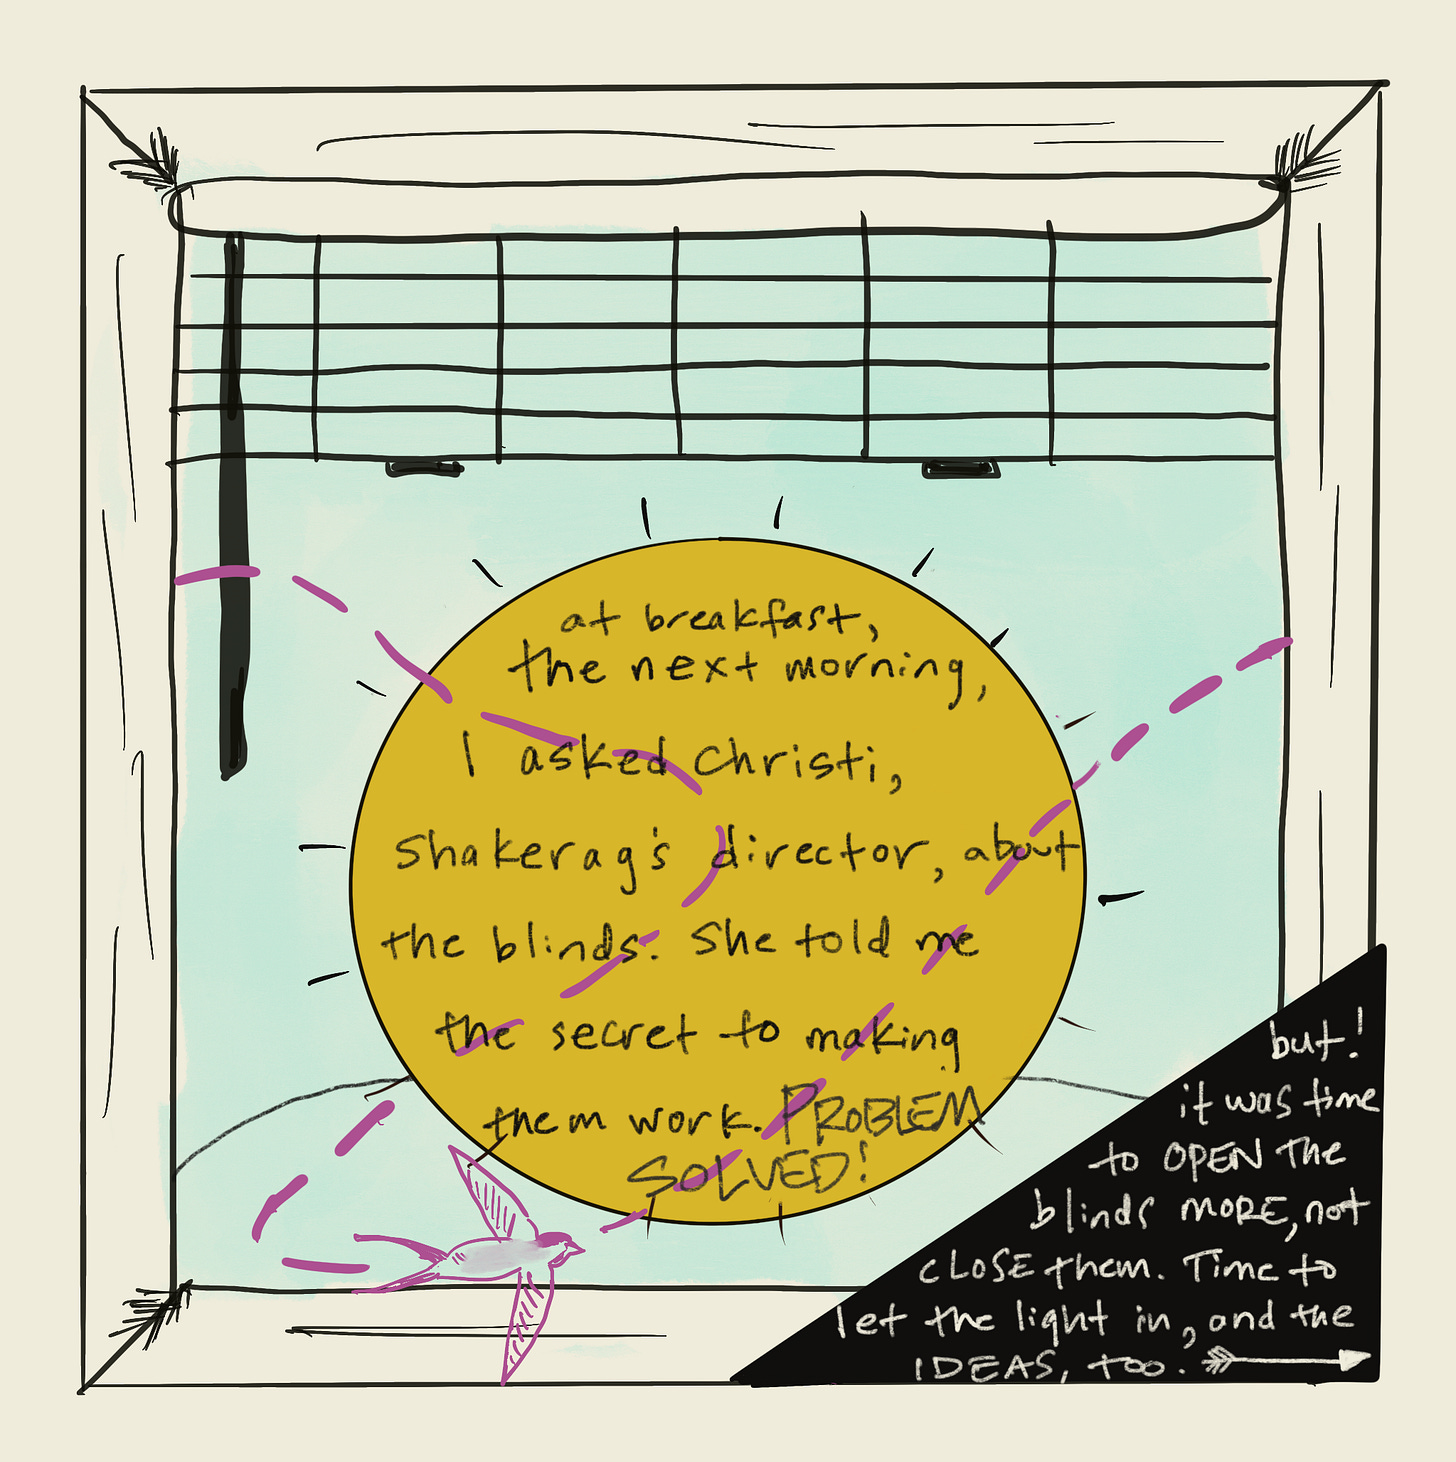 at breakfast,
the next morning,
I asked Christi,
Shakerag's director, about
the blinds. She told me
the secret to making
them work. PROBLEM
SOLVED!
but!
it was time
to OPEN the
blinds MORE, not
CLOSE them. Time to
let the light in, and the
IDEAS, too.